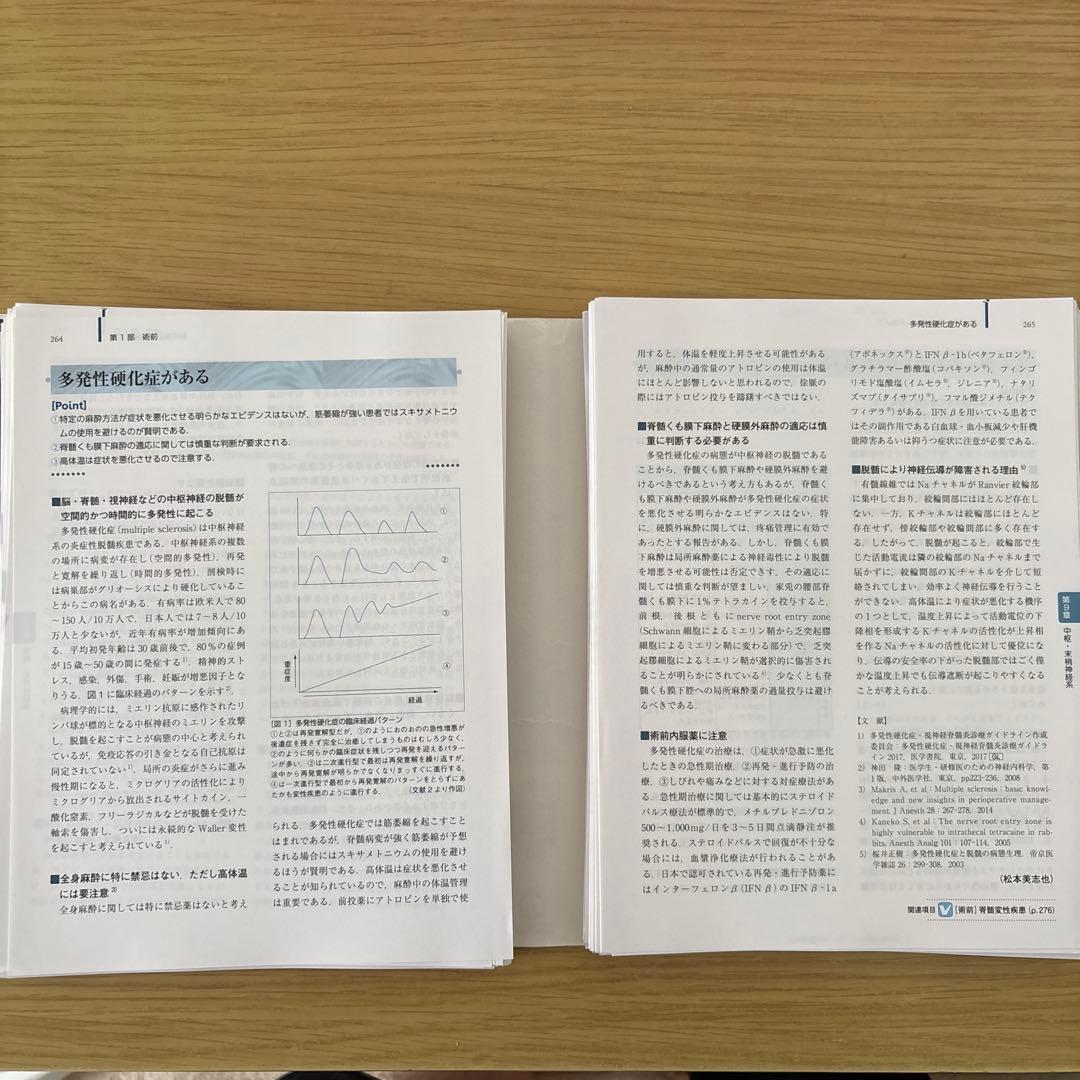 264
第1部 術前
多発性硬化症がある
[Point]
①特定の麻酔方法が症状を悪化させる明らかなエビデンスはないが，筋萎縮が強い患者ではスキサメトニウ
ムの使用を避けるのが賢明である．
②脊髄くも膜下麻酔の適応に関しては慎重な判断が要求される．
③高体温は症状を悪化させるので注意する．
■脳・脊髄・視神経などの中枢神経の脱髄が
空間的かつ時間的に多発性に起こる
多発性硬化症(multiple sclerosis)は中枢神経
系の炎症性脱髄疾患である．中枢神経系の複数
の場所に病変が存在し(空間的多発性)，再発
と寛解を繰り返し(時間的多発性)，剖検時に
は病巣部がグリオーシスにより硬化しているこ
とからこの病名がある．有病率は欧米人で80
～150人/10万人で，日本人では7～8人/10
万人と少ないが，近年有病率が増加傾向にあ
る．平均初発年齢は30歳前後で，80％の症例
が15歳～50歳の間に発症する1)．精神的スト
レス，感染，外傷，手術，妊娠が増悪因子とな
りうる．図1に臨床経過のパターンを示す2)．
病理学的には，ミエリン抗原に感作されたリ
ンパ球が標的となる中枢神経のミエリンを攻撃
し，脱髄を起こすことが病態の中心と考えられ
ているが，免疫応答の引き金となる自己抗原は
同定されていない1)．局所の炎症がさらに進み
慢性期になると，ミクログリアの活性化により
ミクログリアから放出されるサイトカイン，一
酸化窒素，フリーラジカルなどが脱髄を受けた
軸索を傷害し，ついには永続的なWaller変性
を起こすと考えられている1)．
■全身麻酔に特に禁忌はない．ただし高体温
には要注意3)
全身麻酔に関しては特に禁忌薬はないと考え
①
②
③
④
重症度
経過
[図1] 多発性硬化症の臨床経過パターン
①と②は再発寛解型だが，①のようにおのおのの急性増悪が
後遺症を残さず完全に治癒してしまうものはむしろ少なく，
②のように何らかの臨床症状を残しつつ再発を迎えるパター
ンが多い．③は二次進行型で最初は再発寛解を繰り返すが，
途中から再発寛解が明らかでなくなりまっすぐに進行する．
④は一次進行型で最初から再発寛解のパターンをとらずにあ
たかも変性疾患のように進行する．
(文献2より作図)
られる．多発性硬化症では筋萎縮を起こすこと
はまれであるが，脊髄病変が強く筋萎縮が予想
される場合にはスキサメトニウムの使用を避け
るほうが賢明である．高体温は症状を悪化させ
ることが知られているので，麻酔中の体温管理
は重要である．前投薬にアトロピンを単独で使
多発性硬化症がある
265
用すると，体温を軽度上昇させる可能性がある
が，麻酔中の通常量のアトロピンの使用は体温
にほとんど影響しないと思われるので，徐脈の
際にはアトロピン投与を躊躇すべきではない．
■脊髄くも膜下麻酔と硬膜外麻酔の適応は慎
重に判断する必要がある
多発性硬化症の病態が中枢神経の脱髄である
ことから，脊髄くも膜下麻酔や硬膜外麻酔を避
けるべきであるという考え方もあるが，脊髄く
も膜下麻酔や硬膜外麻酔が多発性硬化症の症状
を悪化させる明らかなエビデンスはない．特
に，硬膜外麻酔に関しては，疼痛管理に有効で
あったとする報告がある．しかし，脊髄くも膜
下麻酔は局所麻酔薬による神経毒性により脱髄
を増悪させる可能性は否定できず，その適応に
関しては慎重な判断が望ましい．家兎の腰部脊
髄くも膜下に1％テトラカインを投与すると，
前根，後根ともにnerve root entry zone
(Schwann細胞によるミエリン鞘から乏突起膠
細胞によるミエリン鞘に変わる部分)で，乏突
起膠細胞によるミエリン鞘が選択的に傷害され
ることが明らかにされている4)．少なくとも脊
髄くも膜下腔への局所麻酔薬の過量投与は避け
るべきである．
■術前内服薬に注意
多発性硬化症の治療は，①症状が急激に悪化
したときの急性期治療，②再発・進行予防の治
療，③しびれや痛みなどに対する対症療法があ
る．急性期治療に関しては基本的にステロイド
パルス療法が標準的で，メチルプレドニゾロン
500～1,000mg/日を3～5日間点滴静注が推
奨される．ステロイドパルスで回復が不十分な
場合には，血漿浄化療法が行われることがあ
る．日本で認可されている再発・進行予防薬に
はインターフェロンβ(IFNβ)のIFNβ-1a
(アボネックス®)とIFNβ-1b(ベタフェロン®)，
グラチラマー酢酸塩(コパキソン®)，フィンゴ
リモド塩酸塩(イムセラ®，ジレニア®)，ナタリ
ズマブ(タイサブリ®)，フマル酸ジメチル(テク
フィデラ®)がある．IFNβを用いている患者で
はその副作用である白血球・血小板減少や肝機
能障害あるいは抑うつ症状に注意が必要である．
■脱髄により神経伝導が障害される理由5)
有髄線維ではNaチャネルがRanvier絞輪部
に集中しており，絞輪間部にはほとんど存在し
ない．一方，Kチャネルは絞輪部にほとんど
存在せず，傍絞輪部や絞輪間部に多く存在す
る．したがって，脱髄が起こると，絞輪部で生
じた活動電流は隣の絞輪部のNaチャネルまで
届かずに，絞輪間部のKチャネルを介して短
絡されてしまい，効率よく神経伝導を行うこと
ができない．高体温により症状が悪化する機序
の1つとして，温度上昇によって活動電位の下
降相を形成するKチャネルの活性化が上昇相
を作るNaチャネルの活性化に対して優位にな
り，伝導の安全率の下がった脱髄部ではごく僅
かな温度上昇でも伝導遮断が起こりやすくなる
ことが考えられる．
【文 献】
1) 多発性硬化症・視神経脊髄炎診療ガイドライン作成
委員会：多発性硬化症・視神経脊髄炎診療ガイドラ
イン2017，医学書院，東京，2017 GL
2) 神田 隆：医学生・研修医のための神経内科学，第
1版，中外医学社，東京，pp223-236, 2008
3) Makris A, et al：Multiple sclerosis：basic knowl-
edge and new insights in perioperative manage-
ment. J Anesth 28：267-278, 2014
4) Kaneko S, et al：The nerve root entry zone is
highly vulnerable to intrathecal tetracaine in rab-
bits. Anesth Analg 101：107-114, 2005
5) 桜井正樹：多発性硬化症と脱髄の病態生理．帝京医
学雑誌 26：299-308, 2003
(松本美志也)
関連項目 [術前] 脊髄変性疾患 (p.276)
第9章
中枢・末梢神経系